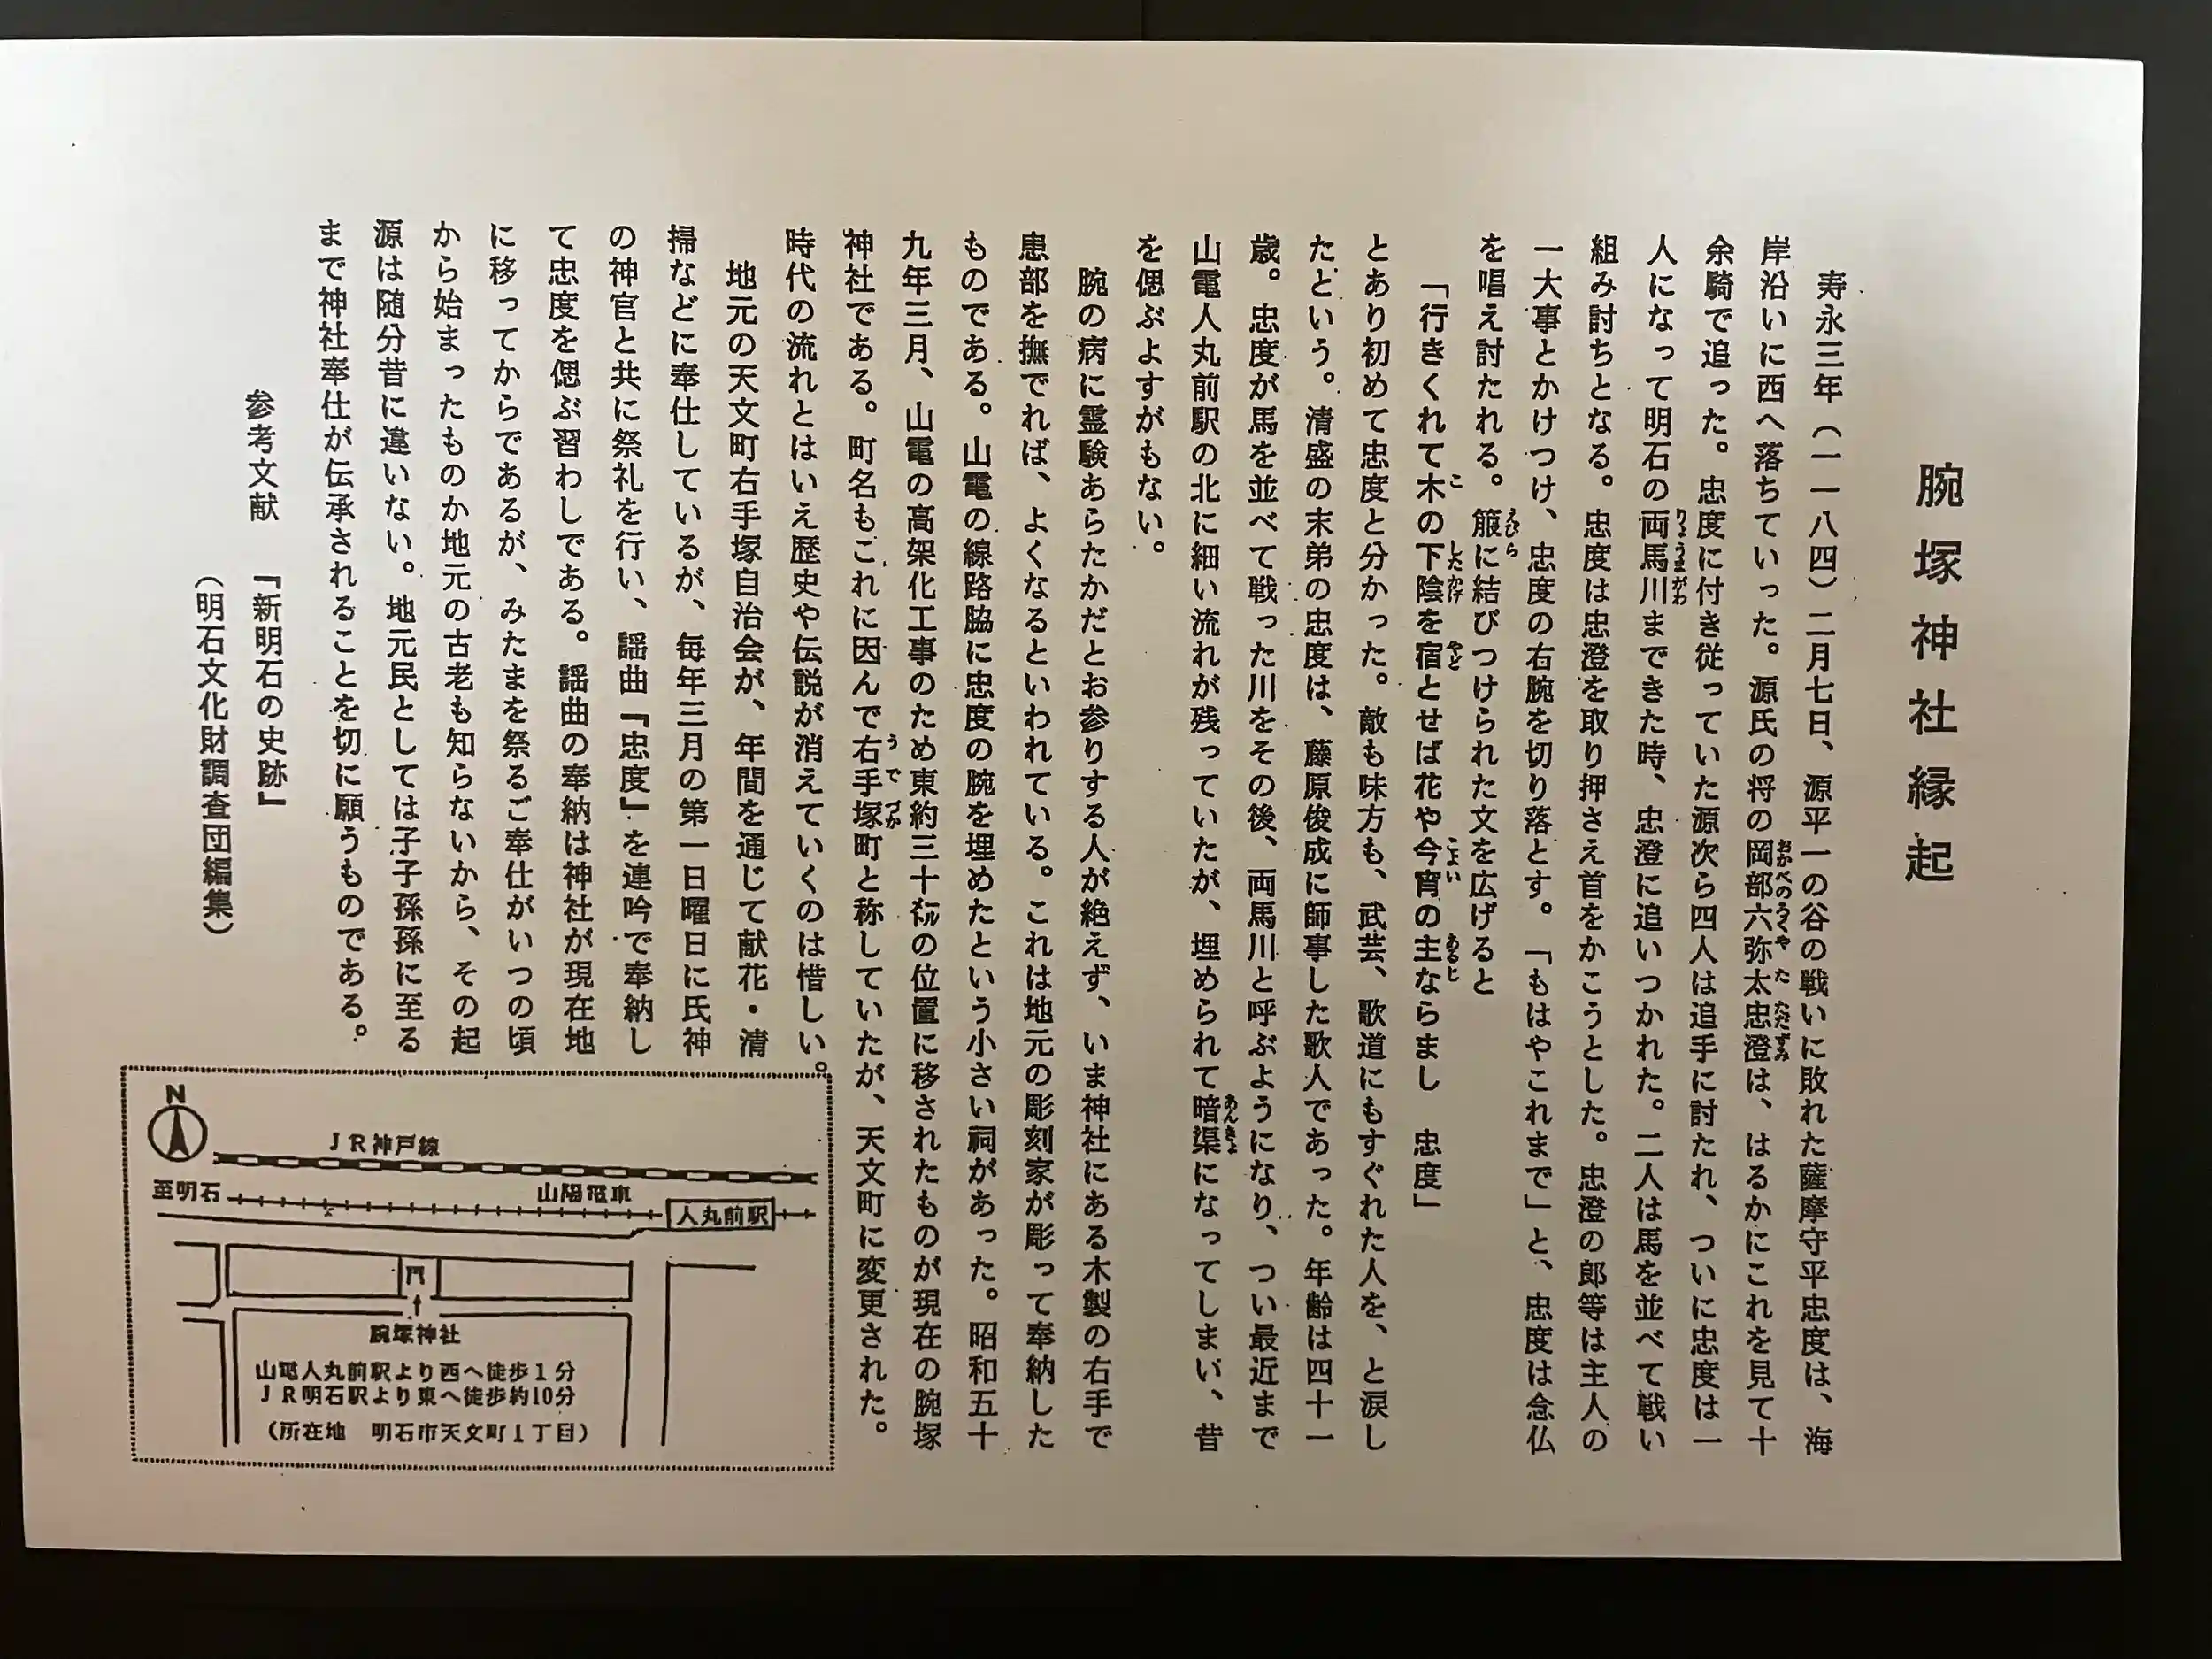 腕塚神社縁起
寿永三年（一一八四）二月七日、源平一の谷の戦いに敗れた薩摩守平忠度は、海
岸沿いに西へ落ちていった。源氏の将の岡部六弥太忠澄は、はるかにこれを見て十
余騎で追った。忠度に付き従っていた源次ら四人は追手に討たれ、ついに忠度は一
人になって明石の両馬川まできた時、忠澄に追いつかれた。二人は馬を並べて戦い
組み討ちとなる。忠度は忠澄を取り押さえ首をかこうとした。忠澄の郎等は主人の
一大事とかけつけ、忠度の右腕を切り落とす。「もはやこれまで」と、忠度は念仏
を唱え討たれる。箙に結びつけられた文を広げると
「行きくれて木の下陰を宿とせば花や今宵の主ならまし　忠度」
とあり初めて忠度と分かった。敵も味方も、武芸、歌道にもすぐれた人を、と涙し
たという。清盛の末弟の忠度は、藤原俊成に師事した歌人であった。年齢は四十一
歳。忠度が馬を並べて戦った川をその後、両馬川と呼ぶようになり、つい最近まで
山電人丸前駅の北に細い流れが残っていたが、埋められて暗渠になってしまい、昔
を偲ぶよすがもない。
腕の病に霊験あらたかだとお参りする人が絶えず、いま神社にある木製の右手で
患部を撫でれば、よくなるといわれている。これは地元の彫刻家が彫って奉納した
ものである。山電の線路脇に忠度の腕を埋めたという小さい祠があった。昭和五十
九年三月、山電の高架化工事のため東約三十㍍の位置に移されたものが現在の腕塚
神社である。町名もこれに因んで右手塚町と称していたが、天文町に変更された。
時代の流れとはいえ歴史や伝説が消えていくのは惜しい。
地元の天文町右手塚自治会が、年間を通じて献花・清
掃などに奉仕しているが、毎年三月の第一日曜日に氏神
の神官と共に祭礼を行い、謡曲『忠度』を連吟で奉納し
て忠度を偲ぶ習わしである。謡曲の奉納は神社が現在地
に移ってからであるが、みたまを祭るご奉仕がいつの頃
から始まったものか地元の古老も知らないから、その起
源は随分昔に違いない。地元民としては子子孫孫に至る
まで神社奉仕が伝承されることを切に願うものである。
参考文献　『新明石の史跡』
（明石文化財調査団編集）
N
JR神戸線
至明石
山陽電車
人丸前駅
腕塚神社
山電人丸前駅より西へ徒歩1分
JR明石駅より東へ徒歩約10分
（所在地　明石市天文町1丁目）